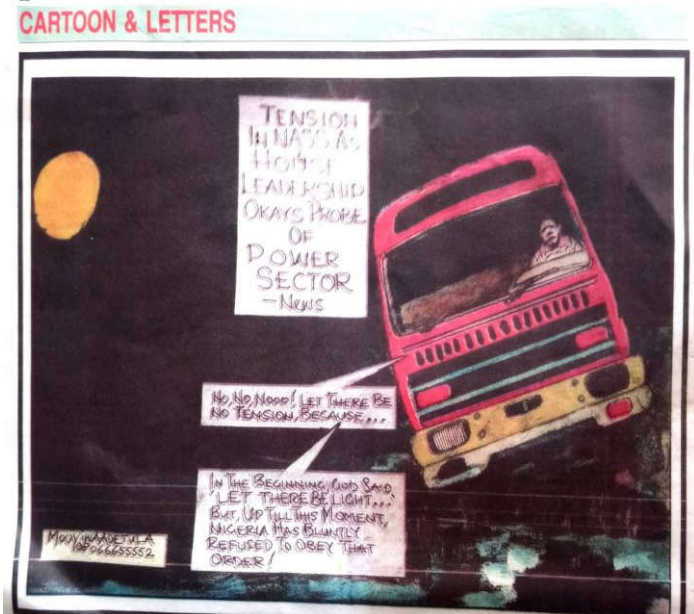 CARTOON & LETTERS
TENSION
IN NASS AS
LEADERSHIP
OKAYS PROBE
OF
POWER
SECTOR
- NEWS
NO, NO, NOOO! LET THERE BE
NO TENSION, BECAUSE...
IN THE BEGINNING, GOD SAID
'LET THERE BE LIGHT...'
BUT, UP TILL THIS MOMENT,
NIGERIA HAS BLUNTLY
REFUSED TO OBEY THAT
ORDER!